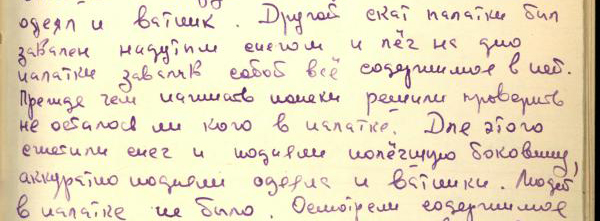 одеял и ватник. Другой скат палатки был
завален надутым снегом и лёг на дно
палатки завалив собой всё содержимое в ней.
Прежде чем начинать поиски решили проверить
не остался ли кого в палатке. Для этого
счистили снег и подняли полёгшую боковину,
аккуратно подняли одеяла и ватники. Людей
в палатке не было. Осмотрели содержимое